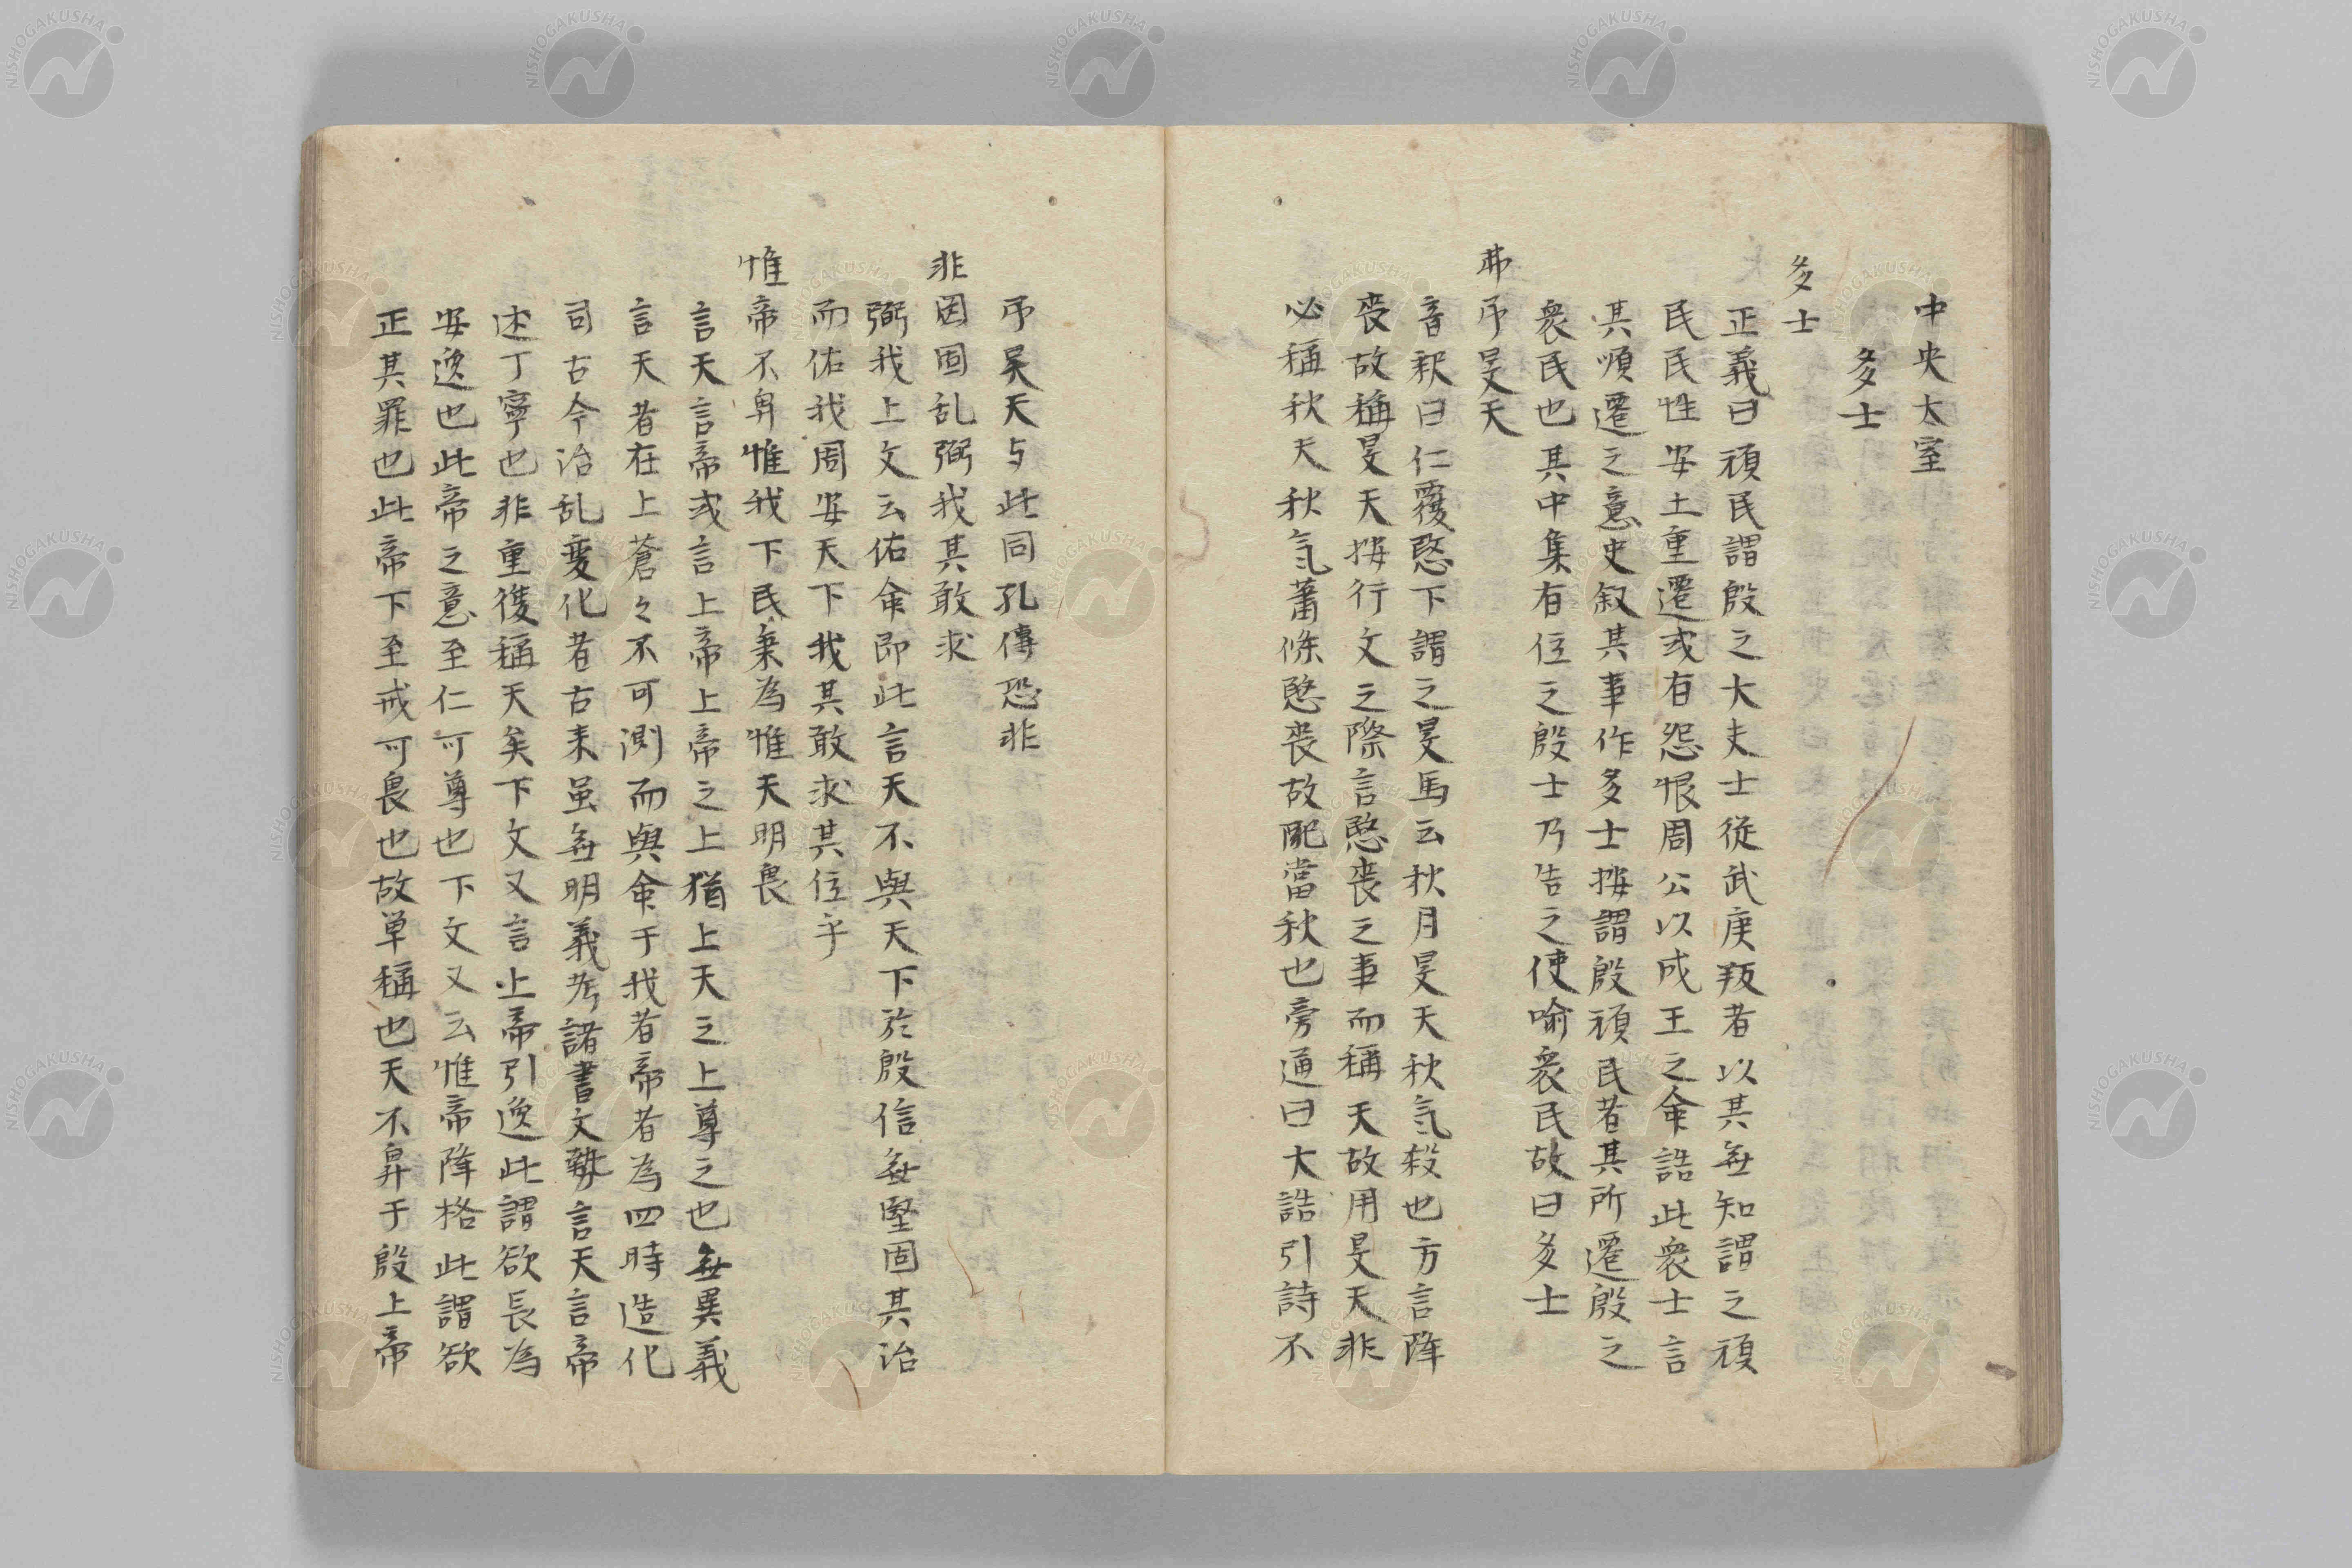 中央太室
多士
多士
正義曰頑民謂殷之大夫士從武庚叛者以其無知謂之頑
民民性安土重遷或有怨恨周公以成王之命誥此衆士言
其順遷之意史叙其事作多士按謂殷頑民者其所遷殷之
衆民也其中集有位之殷士乃告之使喻衆民故曰多士
弗弔旻天
音釈曰仁覆愍下謂之旻馬云秋月旻天秋气殺也方言降
喪故稱旻天按行文之際言愍喪之事而稱天故用旻天非
必稱秋天秋气蕭條愍喪故配當秋也旁通曰大誥引詩不
弔昊天与此同孔傳恐非
非因固乱弼我其敢求
弼我上文云佑命即此言天不與天下於殷信無堅固其治
而佑我周安天下我其敢求其位乎
惟帝不畀惟我下民秉為惟天明畏
言天言帝或言上帝上帝之上猶上天之上尊之也無異義
言天者在上蒼々不可測而與命于我者帝者為四時造化
司古今治乱変化者古来虽無明義考諸書文勢言天言帝
述丁寧也非重復稱天矣下文又言上帝引逸此謂欲長為
安逸也此帝之意至仁可尊也下文又云惟帝降格此謂欲
正其罪也此帝下至戒可畏也故単稱也天不畀于殷上帝
NISHOGAKUSHA